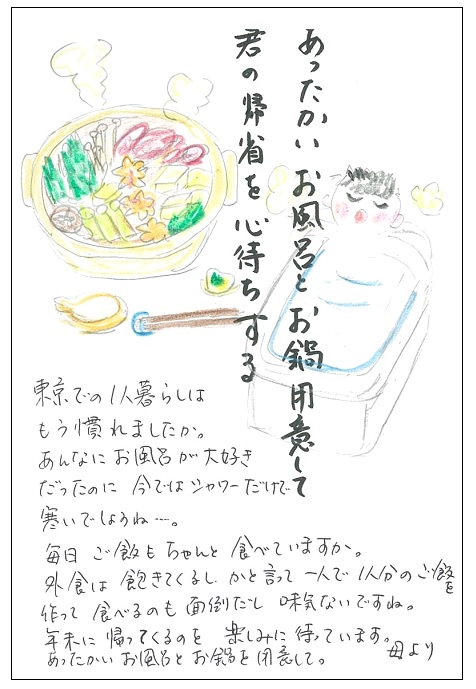 あったかいお風呂とお鍋用意して
君の帰省を心待ちする
東京での1人暮らしは
もう慣れましたか。
あんなにお風呂が大好き
だったのに 今ではシャワーだけで
寒いでしょうね…。
毎日 ご飯もちゃんと食べていますか。
外食は飽きてくるし かと言って一人で1人分のご飯を
作って食べるのも面倒だし 味気ないですね。
年末に帰ってくるのを 楽しみに待っています。
あったかいお風呂とお鍋を用意して。
母より